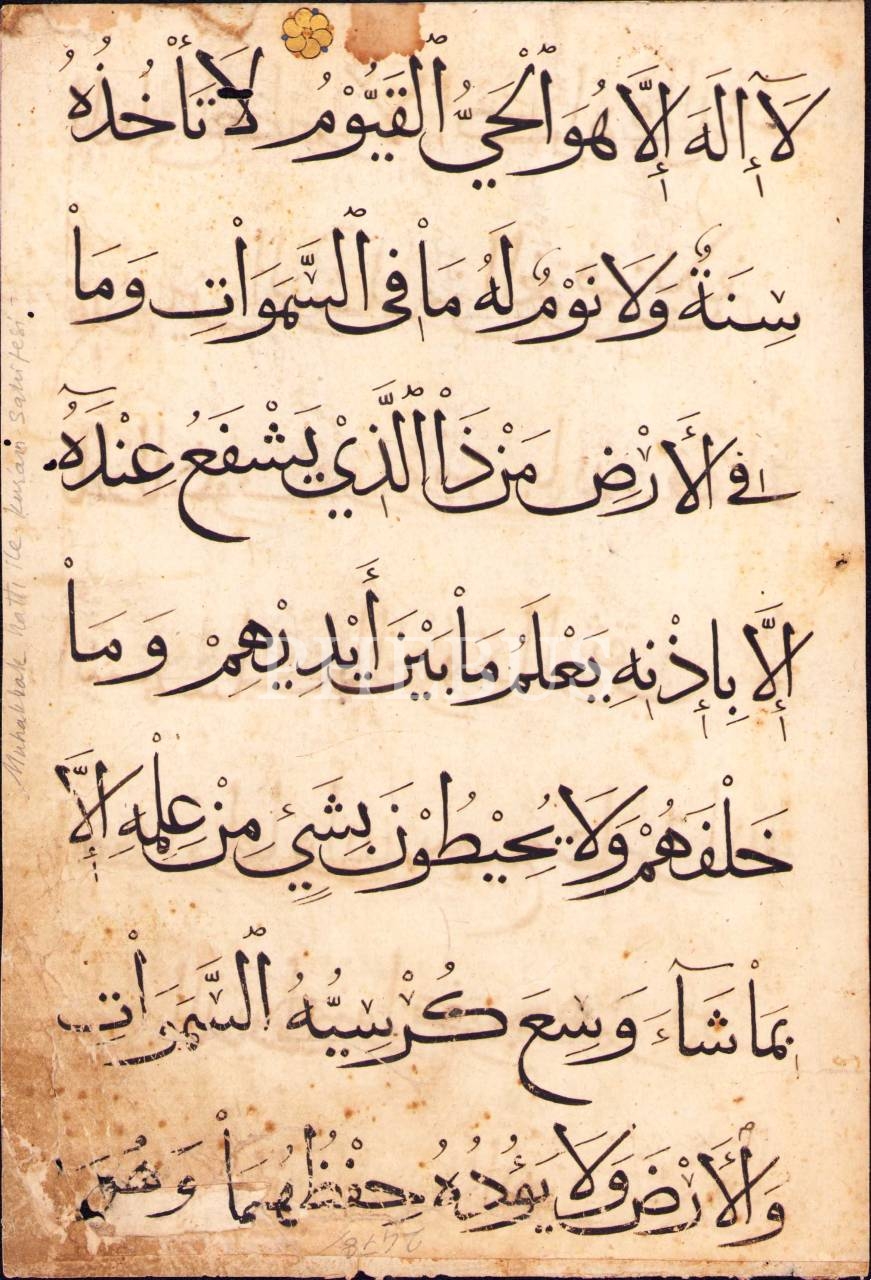 لَآ إِلَهَ إِلَّا هُوَ ٱلْحَيُّ ٱلْقَيُّوْمُ لَا تَأْخُذُهُ
سِنَةٌ وَلَا نَوْمٌ لَهُ مَاْ فِى ٱلسَّمَوَاْتِ وَمَاْ
فِي ٱلْأَرْضِ مَنْ ذَاْ ٱلَّذِيْ يَشْفَعُ عِنْدَهُ
إِلَّا بِإِذْنِهِ يَعْلَمُ مَاْ بَيْنَ أَيْدِيْهِمْ وَمَاْ
خَلْفَهُمْ وَلَا يُحِيْطُوْنَ بِشَيْءٍ مِنْ عِلْمِهِ إِلَّا
بِمَاْ شَآءَ وَسِعَ كُرْسِيُّهُ ٱلسَّمَوَاْتِ
وَٱلْأَرْضَ وَلَا يَؤُدُهُ حِفْظُهُمَاْ وَهُوَ
Muhakkak hattı ile kuran sahifesi
PHEBUS